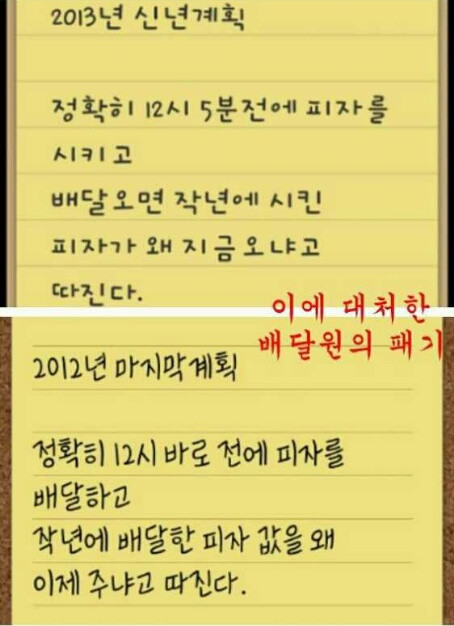 2013년 신년계획
정확히 12시 5분전에 피자를
시키고
배달오면 작년에 시킨
피자가 왜 지금오냐고
따진다.
이에 대처한
배달원의 패기
2012년 마지막계획
정확히 12시 바로 전에 피자를
배달하고
작년에 배달한 피자 값을 왜
이제 주냐고 따진다.